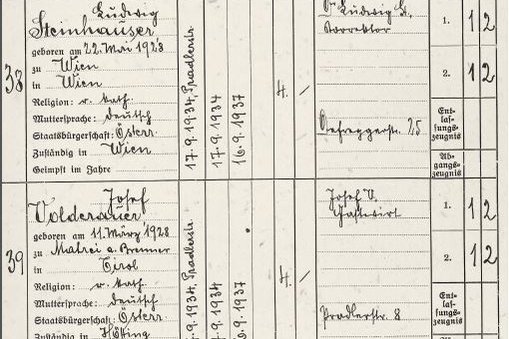 38
Ludwig
Steinhauser
geboren am 22. Mai 1923
zu Wien
in Wien
Religion: r. kath.
Muttersprache: deutsch
Staatsbürgerschaft: Österr.
Zuständig in Wien
Geimpft im Jahre
17.9.1934, Pradlerstr.
17.9.1934
16.9.1937
4.
Ludwig
Korrektor
Defreggerstr. 25
1. 1 2
2. 1 2
Ent-
las-
sungs-
zeugnis
Ab-
gangs-
zeugnis
39
Josef
Volderauer
geboren am 11. März 1923
zu Matrei a. Brenner
in Tirol
Religion: r. kath.
Muttersprache: deutsch
Staatsbürgerschaft: Österr.
Zuständig in Hötting
.9.1934, Pradlerstr.
.9.1934
.9.1937
4.
Josef V.
Gastwirt
Pradlerstr. 8
1. 1 2
2. 1 2
Ent-
las-
sungs-
zeugnis